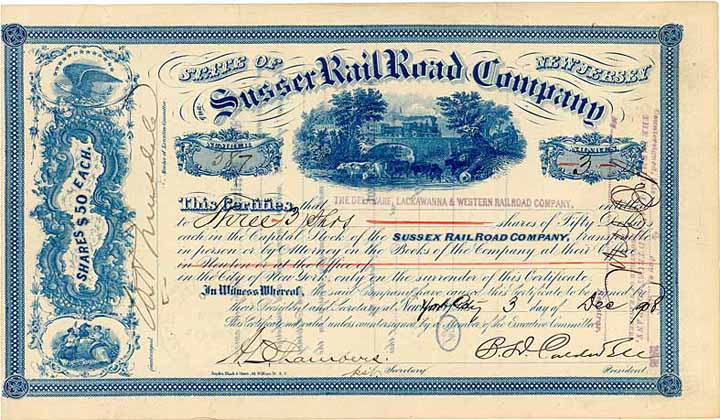 STATE OF NEW JERSEY
THE Sussex Rail Road Company
NUMBER
387
SHARES
3
SHARES $50 EACH.
This Certifies that THE DELAWARE, LACKAWANNA & WESTERN RAILROAD COMPANY, entitled
to Three 3 Shrs shares of Fifty Dollars
each in the Capital Stock of the SUSSEX RAIL ROAD COMPANY, transferable
in person or by Attorney in the Books of the Company at their
in the City of New York, only on the surrender of this Certificate.
In Witness Whereof, the said Company have caused this Certificate to be signed by
their President and Secretary at New York City 3 day of Dec 1908
This Certificate not valid unless countersigned by a Member of the Executive Committee
Secretary
Countersigned
Member of Executive Committee